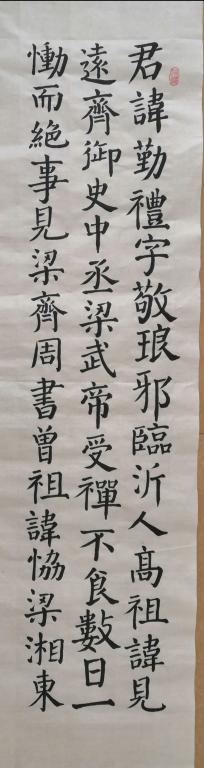 君諱勤禮字敬琅邪臨沂人高祖諱見
遠齊御史中丞梁武帝受禪不食數日一
慟而絕事見梁齊周書曾祖諱恊梁湘東